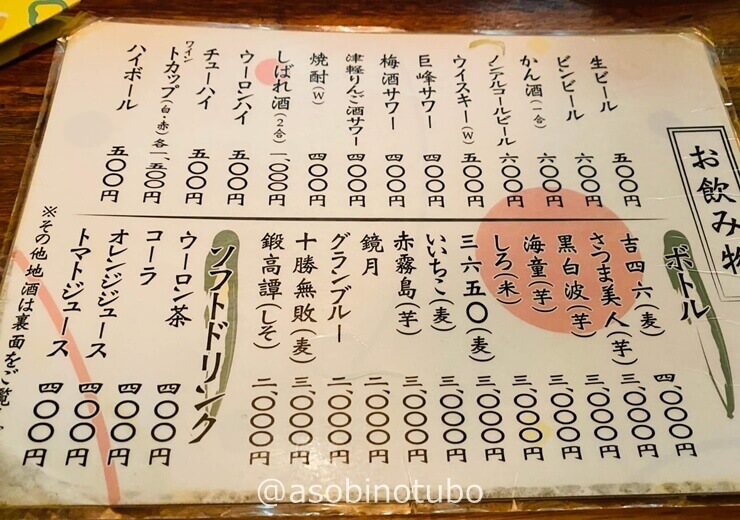 お飲み物
生ビール 五〇〇円
ビンビール 六〇〇円
かん酒(一合) 六〇〇円
ノンアルコールビール 六〇〇円
ウイスキー(W) 五〇〇円
巨峰サワー 四〇〇円
梅酒サワー 四〇〇円
津軽りんご酒サワー 四〇〇円
焼酎(W) 四〇〇円
しばれ酒(2合) 一、〇〇〇円
ウーロンハイ 五〇〇円
チューハイ 五〇〇円
ワイン
トカップ(白・赤)各 一、五〇〇円
ハイボール 五〇〇円
ボトル
吉四六(麦) 四、〇〇〇円
さつま美人(芋) 三、〇〇〇円
黒白波(芋) 三、〇〇〇円
海童(芋) 三、〇〇〇円
しろ(米) 三、〇〇〇円
三六五〇(麦) 三、〇〇〇円
いいちこ(麦) 三、〇〇〇円
赤霧島(芋) 三、〇〇〇円
鏡月 二、〇〇〇円
グランブルー 二、〇〇〇円
十勝無敗(麦) 三、〇〇〇円
鍛高譚(しそ) 二、〇〇〇円
ソフトドリンク
ウーロン茶 四〇〇円
コーラ 四〇〇円
オレンジジュース 四〇〇円
トマトジュース 四〇〇円
※その他地酒は裏面をご覧
@asobinotubo